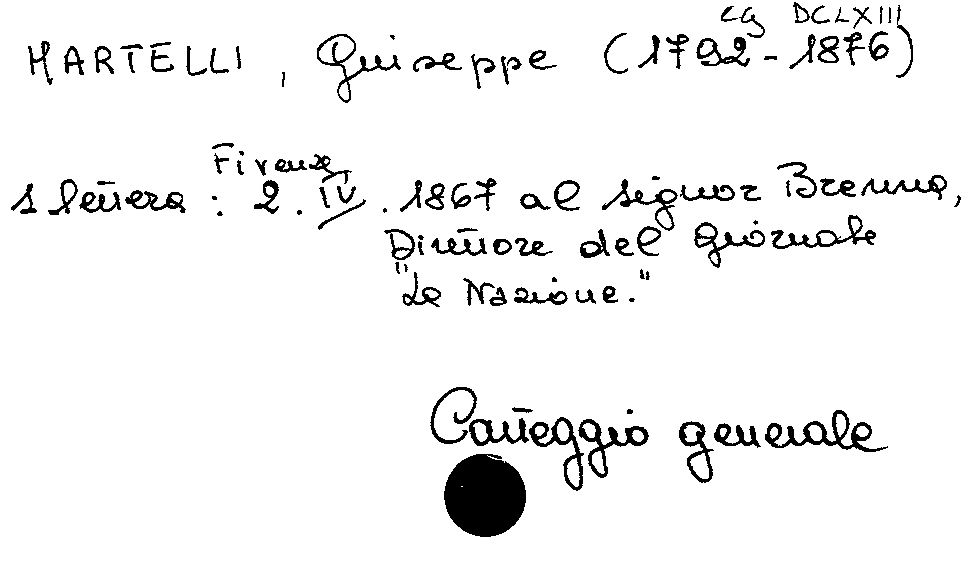 CG DCLXIII
MARTELLI, Giuseppe (1792-1876)
Firenze,
1 lettera: 2.IV.1867 al signor Brenna,
Direttore del giornale
"La Nazione."
Carteggio generale